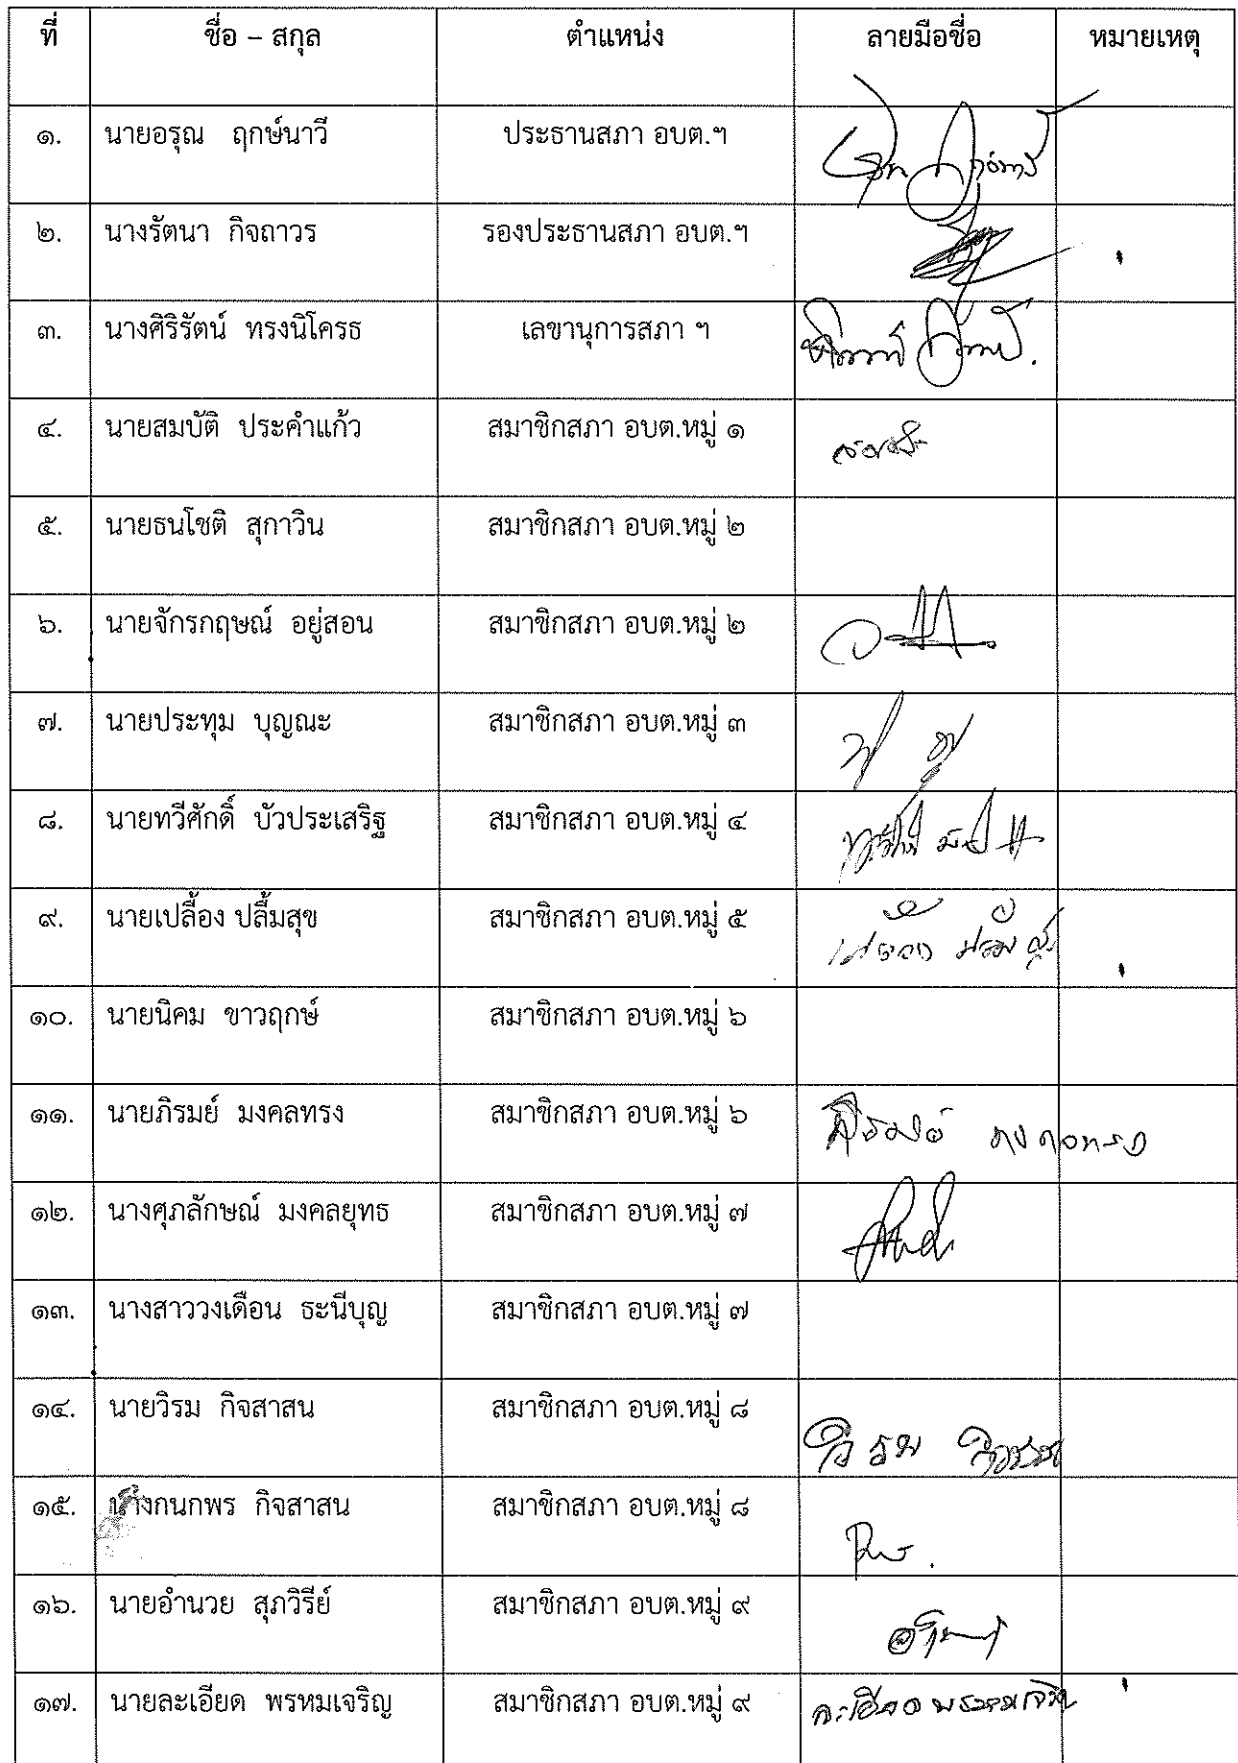 ที่ ชื่อ – สกุล ตำแหน่ง ลายมือชื่อ หมายเหตุ
๑. นายอรุณ ฤกษ์นาวี ประธานสภา อบต.ฯ
๒. นางรัตนา กิจถาวร รองประธานสภา อบต.ฯ
๓. นางศิริรัตน์ ทรงนิโครธ เลขานุการสภา ฯ
๔. นายสมบัติ ประคำแก้ว สมาชิกสภา อบต.หมู่ ๑
๕. นายธนโชติ สุกาวิน สมาชิกสภา อบต.หมู่ ๒
๖. นายจักรกฤษณ์ อยู่สอน สมาชิกสภา อบต.หมู่ ๒
๗. นายประทุม บุญณะ สมาชิกสภา อบต.หมู่ ๓
๘. นายทวีศักดิ์ บัวประเสริฐ สมาชิกสภา อบต.หมู่ ๔
๙. นายเปลื้อง ปลื้มสุข สมาชิกสภา อบต.หมู่ ๕ เปลื้อง ปลื้มสุข
๑๐. นายนิคม ขาวฤกษ์ สมาชิกสภา อบต.หมู่ ๖
๑๑. นายภิรมย์ มงคลทรง สมาชิกสภา อบต.หมู่ ๖ ภิรมย์ มงคลทรง
๑๒. นางศุภลักษณ์ มงคลยุทธ สมาชิกสภา อบต.หมู่ ๗
๑๓. นางสาววงเดือน ธะนีบุญ สมาชิกสภา อบต.หมู่ ๗
๑๔. นายวิรม กิจสาสน สมาชิกสภา อบต.หมู่ ๘ วิรม กิจสาสน
๑๕. นางกนกพร กิจสาสน สมาชิกสภา อบต.หมู่ ๘
๑๖. นายอำนวย สุภวิรีย์ สมาชิกสภา อบต.หมู่ ๙
๑๗. นายละเอียด พรหมเจริญ สมาชิกสภา อบต.หมู่ ๙ ละเอียด พรหมเจริญ